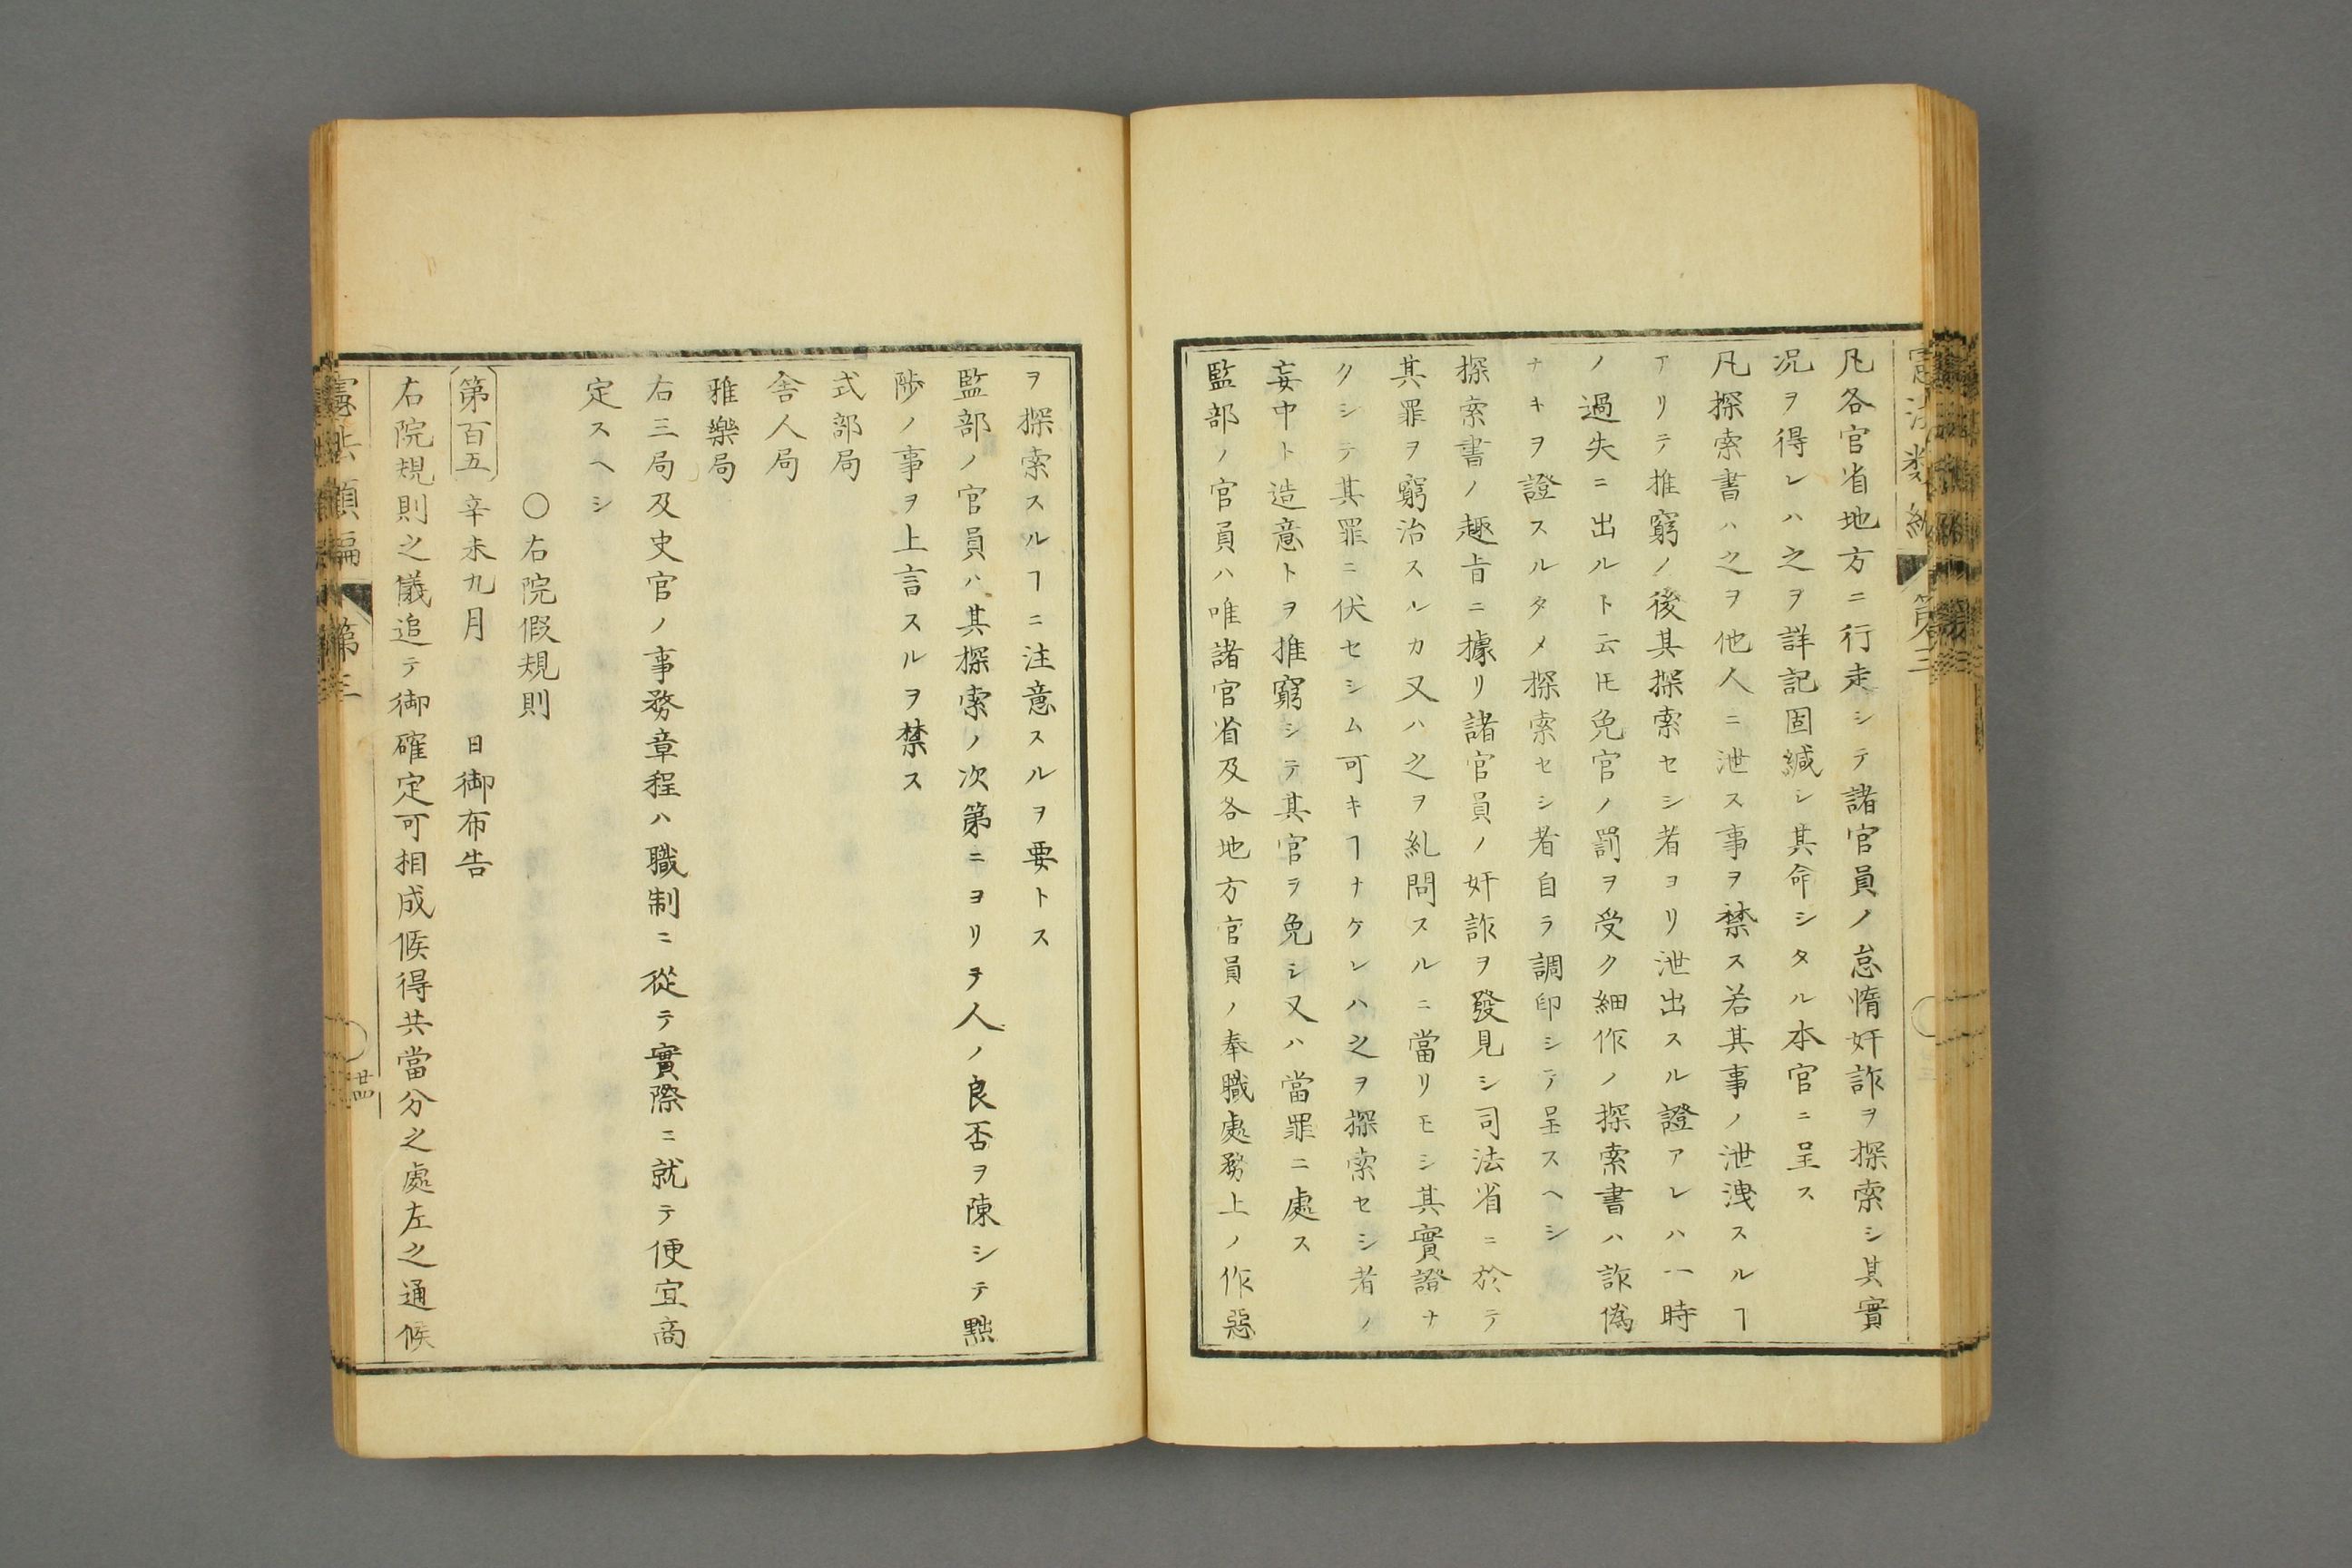 凡各官省地方ニ行走シテ諸官員ノ怠惰奸詐ヲ探索シ其實
况ヲ得レハ之ヲ詳記固緘シ其命シタル本官ニ呈ス
凡探索書ハ之ヲ他人ニ泄ス事ヲ禁ス若其事ノ泄洩スルヿ
アリテ推窮ノ後其探索セシ者ヨリ泄出スル證アレハ一時
ノ過失ニ出ルト云𪜈免官ノ罰ヲ受ク細作ノ探索書ハ詐僞
ナキヲ證スルタメ探索セシ者自ラ調印シテ呈スヘシ
探索書ノ趣旨ニ據リ諸官員ノ奸詐ヲ發見シ司法省ニ於テ
其罪ヲ窮治スルカ又ハ之ヲ糺問スルニ當リモシ其實證ナ
クシテ其罪ニ伏セシム可キヿナケレハ之ヲ探索セシ者ノ
妄中ト造意トヲ推窮シテ其官ヲ免シ又ハ當罪ニ處ス
監部ノ官員ハ唯諸官省及各地方官員ノ奉職處務上ノ作惡
ヲ探索スルヿニ注意スルヲ要トス
監部ノ官員ハ其探索ノ次第ニヨリテ人ノ良否ヲ陳シテ黜
陟ノ事ヲ上言スルヲ禁ス
式部局
舍人局
雅樂局
右三局及史官ノ事務章程ハ職制ニ從テ實際ニ就テ便宜商
定スヘシ
〇右院假規則
第百五 辛未九月 日御布告
右院規則之儀追テ御確定可相成候得共當分之處左之通候
憲法類編 第三 廿四